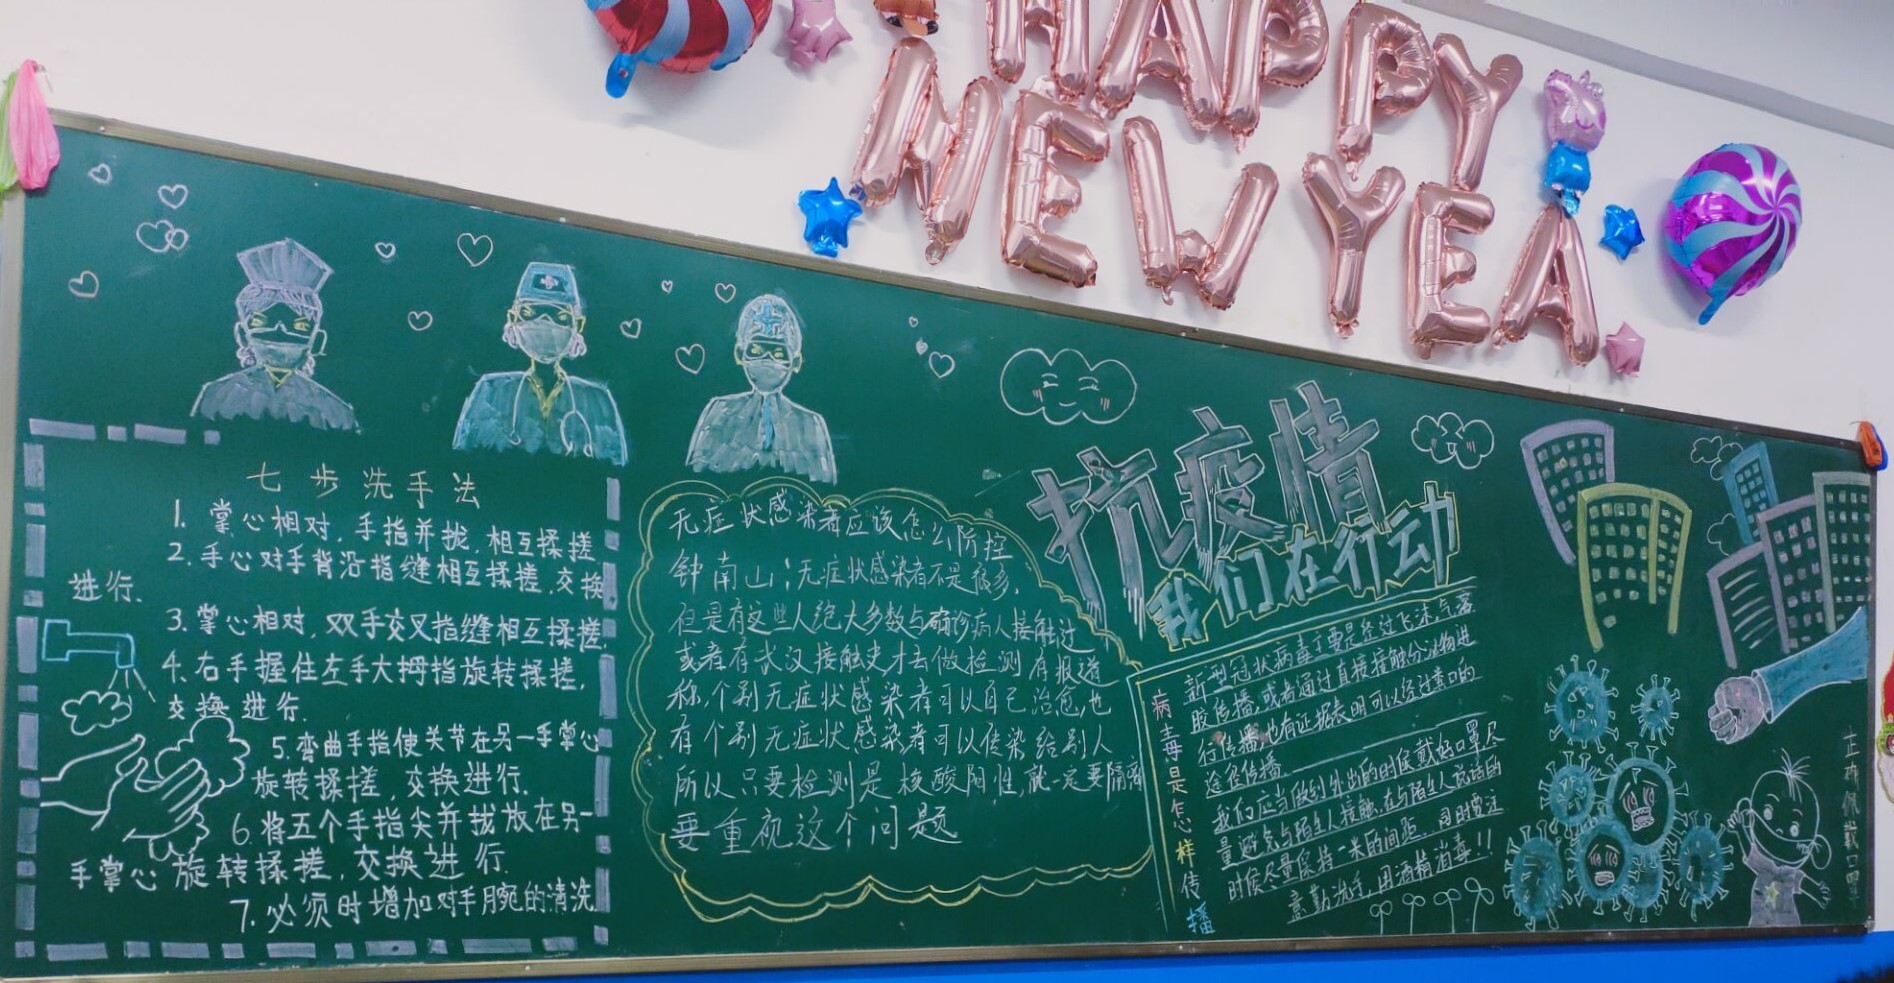 HAPPY
NEW YEA
七步洗手法
1. 掌心相对,手指并拢,相互揉搓
2. 手心对手背沿指缝相互揉搓,交换
进行.
3. 掌心相对,双手交叉指缝相互揉搓,
4. 右手握住左手大拇指旋转揉搓,
交换进行.
5. 弯曲手指使关节在另一手掌心
旋转揉搓,交换进行.
6. 将五个手指尖并拢放在另一
手掌心旋转揉搓,交换进行.
7. 必须时增加对手腕的清洗.
无症状感染者应该怎么防控
钟南山:无症状感染者不是很多,
但是有这些人绝大多数与确诊病人接触过
或者有武汉接触史才去做检测有报道
称,个别无症状感染者可以自己治愈,也
有个别无症状感染者可以传染给别人
所以只要检测是核酸阳性,就一定要隔离
要重视这个问题
抗疫情
我们在行动
病毒是怎样传播
新型冠状病毒主要是经过飞沫,气落
胶传播,或者通过直接接触分泌物进
行传播,也有证据表明可以经过粪口的
途径传播.
我们应当做到外出的时候戴好口罩尽
量避免与陌生人接触,在与陌生人说话的
时候尽量保持一米的间距.同时要注
意勤洗手,用酒精消毒!!
正确佩戴口罩